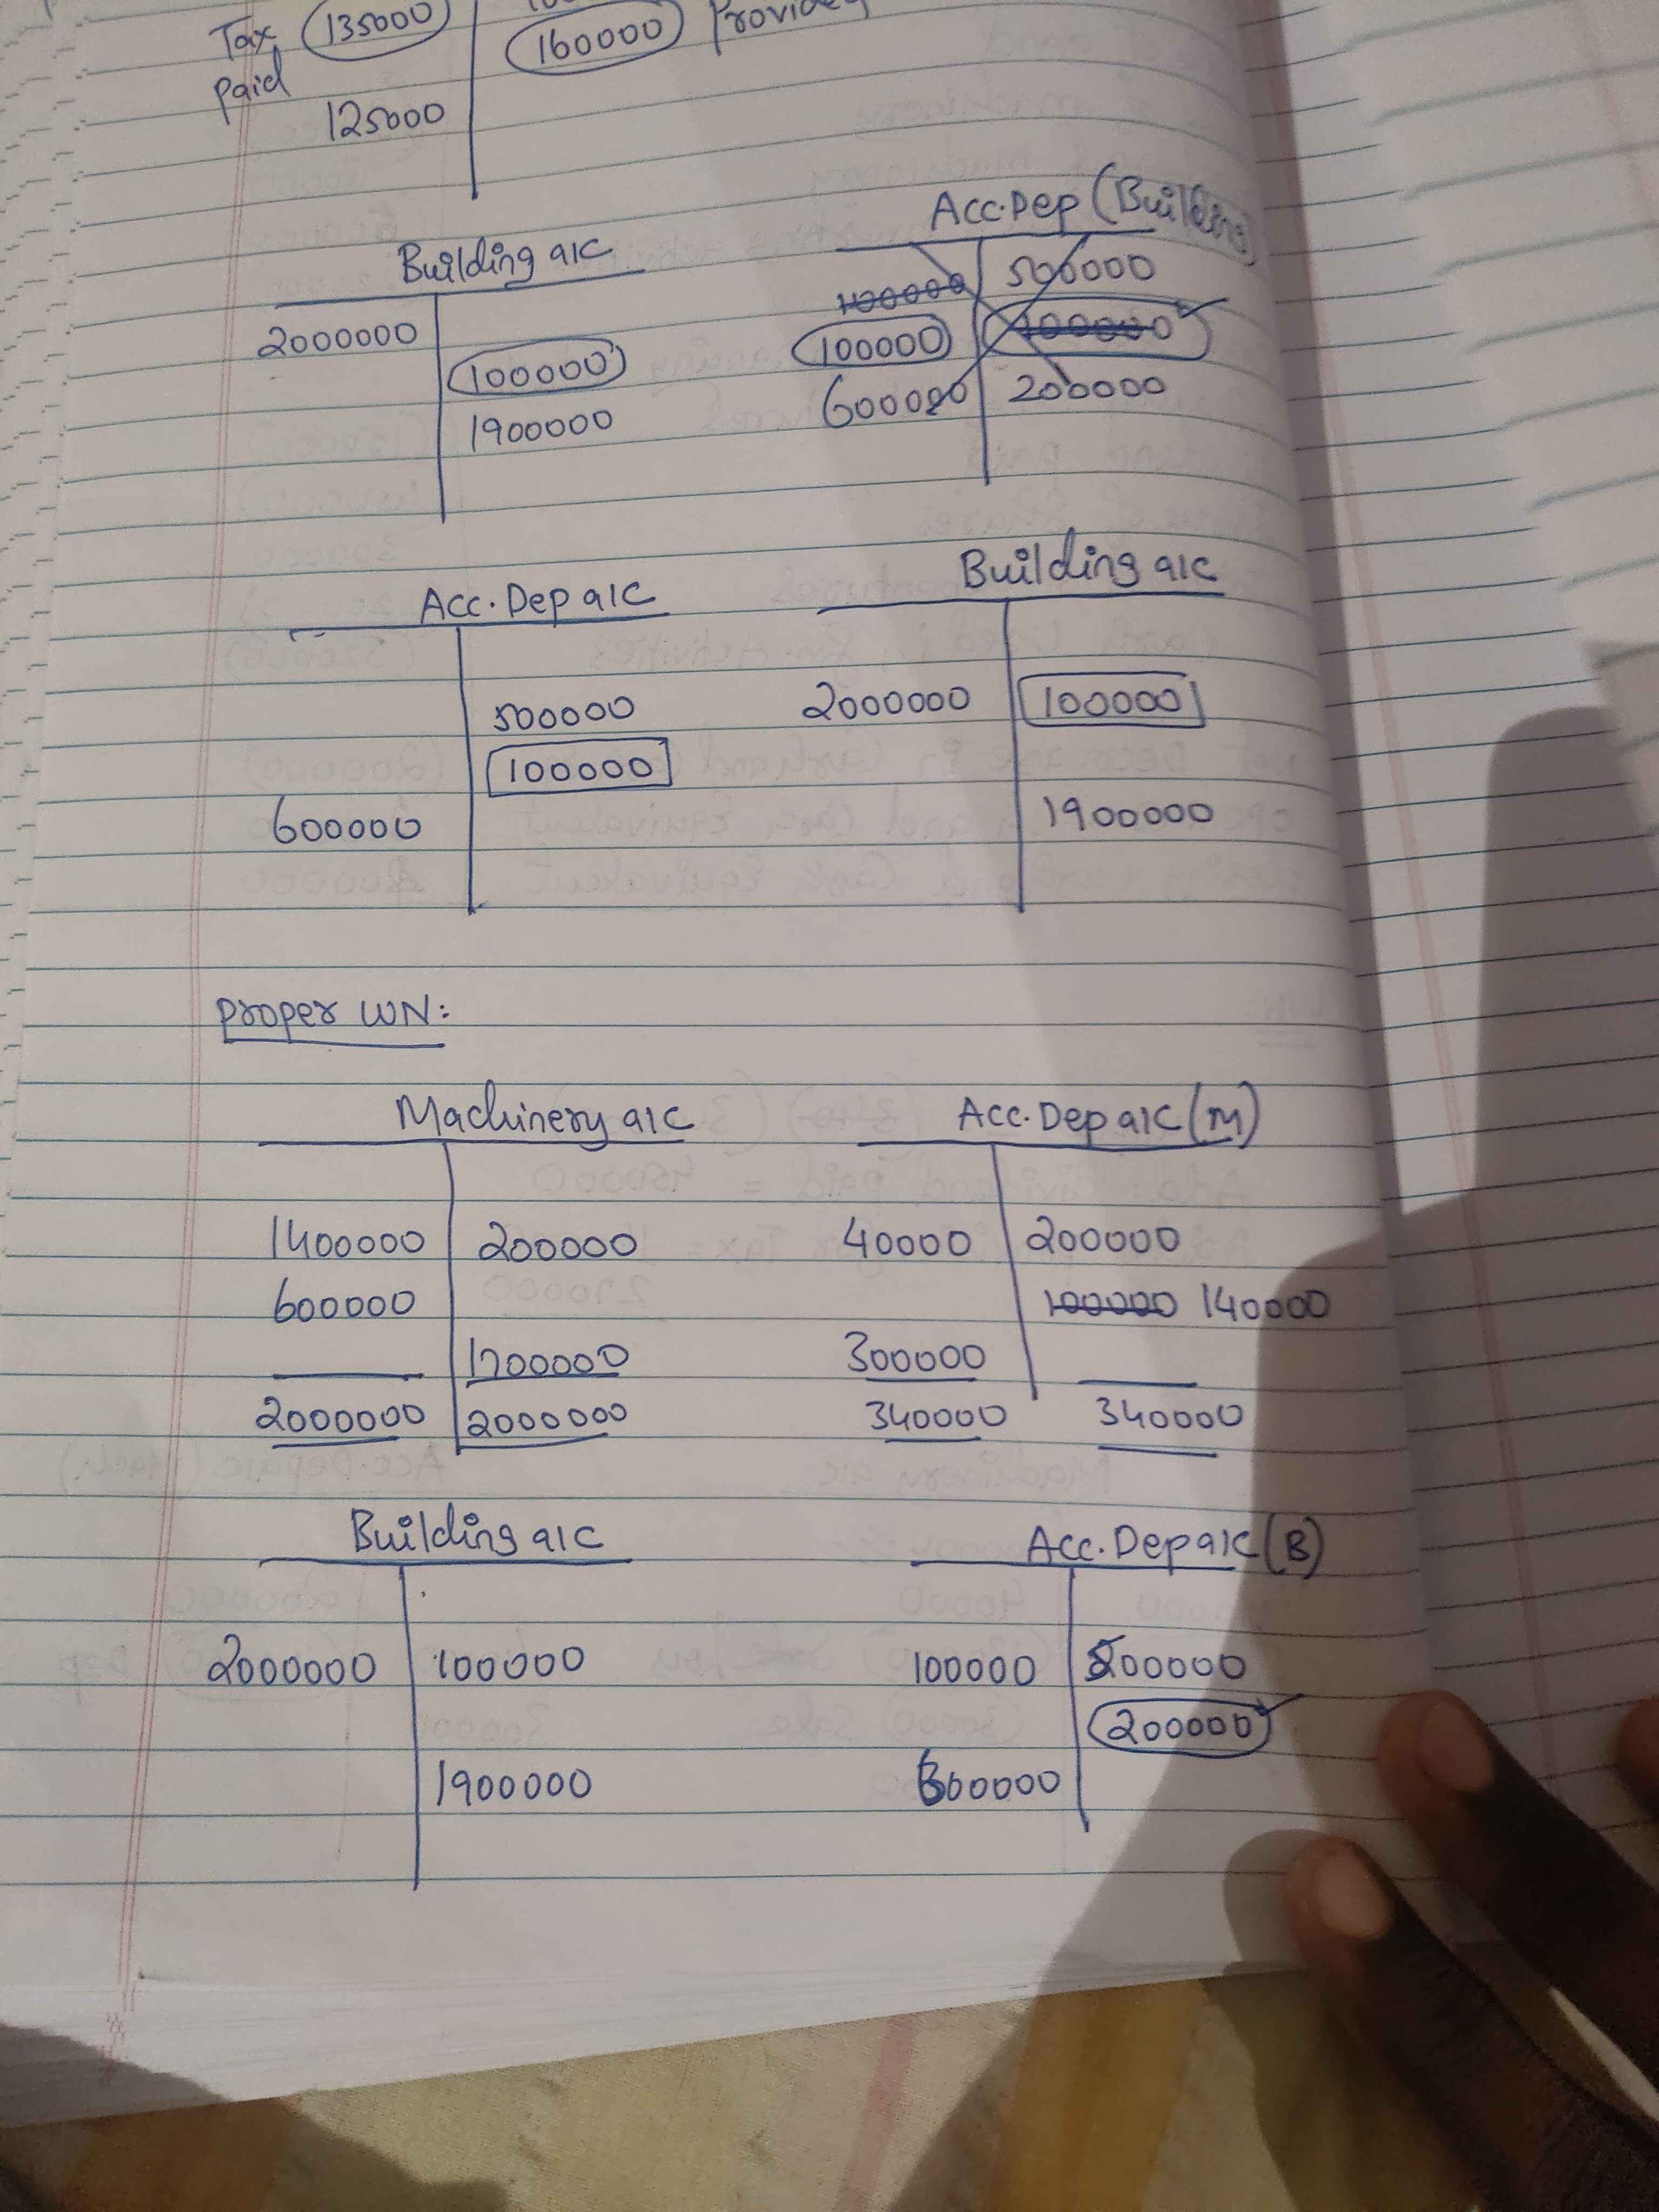 Tax 135000
160000
paid
125000
Acc.Dep (Building)
Building a/c
500000
100000
2000000
100000
100000
100000
600000
200000
1900000
Building a/c
Acc.Dep a/c
500000
2000000
100000
100000
600000
1900000
Proper WN:
Machinery a/c
Acc.Dep a/c (M)
1400000
200000
40000
200000
600000
100000
140000
300000
2000000
2000000
340000
340000
Building a/c
Acc.Dep a/c (B)
2000000
100000
100000
500000
200000
1900000
600000